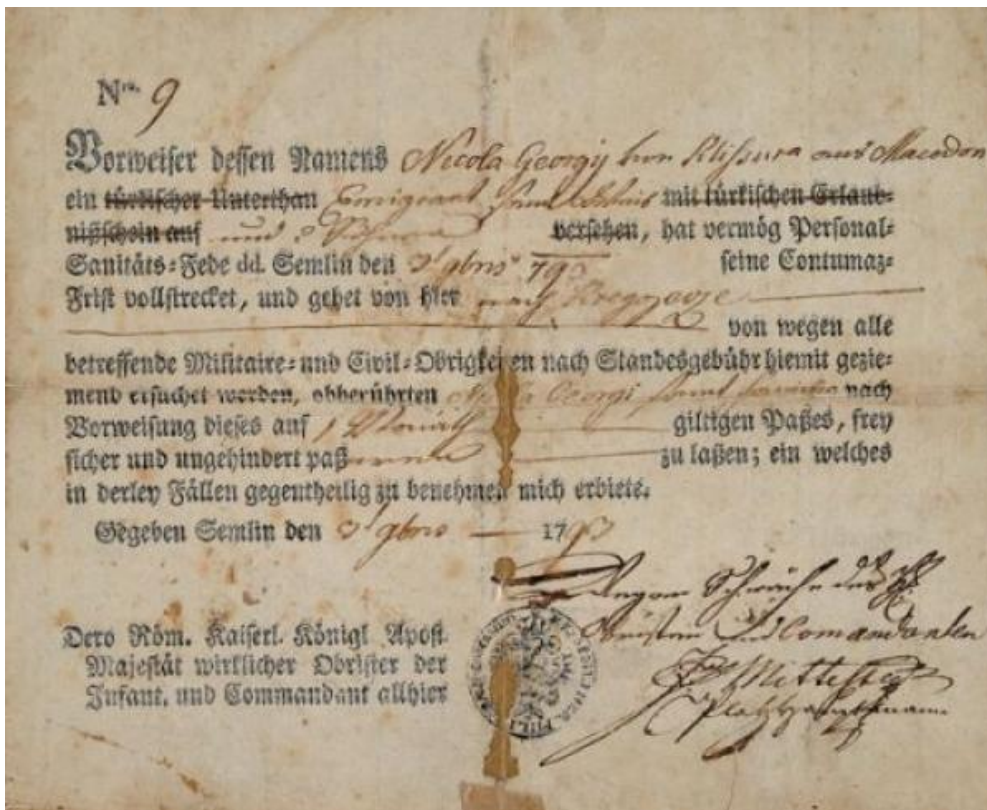 Nro. 9
Vorweiser dessen Namens Nicola Georgij von Klißura aus Macedon
ein türkischer Unterthan Emigrant samt mit türkischen Erlaub-
nißschein auf und versehen, hat vermög Personal-
Sanitäts-Fede dd. Semlin den 3t 9bris 793 seine Contumaz-
Frist vollstrecket, und gehet von hier nach
von wegen alle
betreffende Militaire- und Civil-Obrigkeiten nach Standesgebühr hiemit gezie-
mend ersuchet werden, obberührten Georgi samt nach
Vorweisung dieses auf giltigen Paßes, frey
sicher und ungehindert paß zu laßen; ein welches
in derley Fällen gegentheilig zu benehmen mich erbiete.
Gegeben Semlin den 3t 9bris 1793
Dero Röm. Kaiserl. Königl Apost.
Majestät wirklicher Obrister der
Infant. und Commandant allhier
Wegen Schwäche des
Obristen und Comandanten
Platzhauptmann